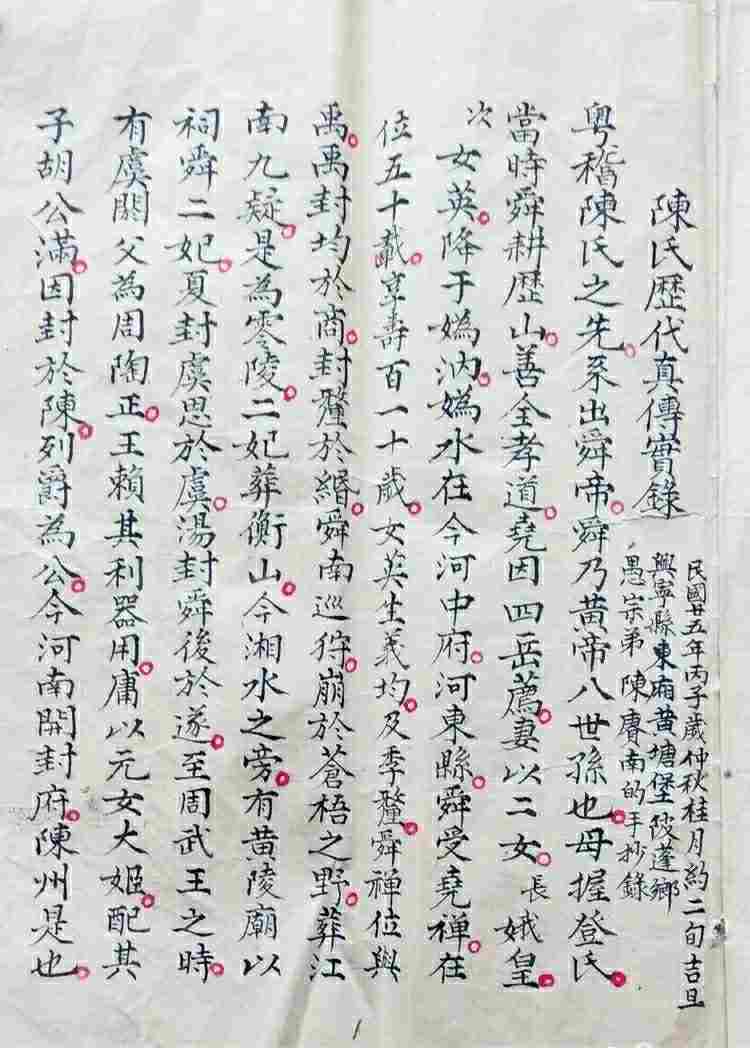 陳氏歷代真傳實錄
民國廿五年丙子歲仲秋桂月約二旬吉旦
興寧縣東廂黃塘堡陂蓬鄉
愚宗弟陳賡南的手抄錄
粵稽陳氏之先。系出舜帝。舜乃黃帝八世孫也。母握登氏。
當時舜耕歷山。善全孝道。堯因四岳薦。妻以二女。長娥皇。
次女英。降于媯汭。媯水在今河中府。河東縣。舜受堯禪。在
位五十載。享壽百一十歲。女英生義均。及季釐。舜禪位與
禹。禹封均於商。封釐於緡。舜南巡狩。崩於蒼梧之野。葬江
南九疑。是為零陵。二妃葬衡山。今湘水之旁。有黄陵廟以
祠舜二妃。夏封虞思於虞。湯封舜後於遂。至周武王之時。
有虞閼父為周陶正。王賴其利器用。庸以元女大姬。配其
子胡公滿。因封於陳。列爵為公。今河南開封府。陳州是也。
1